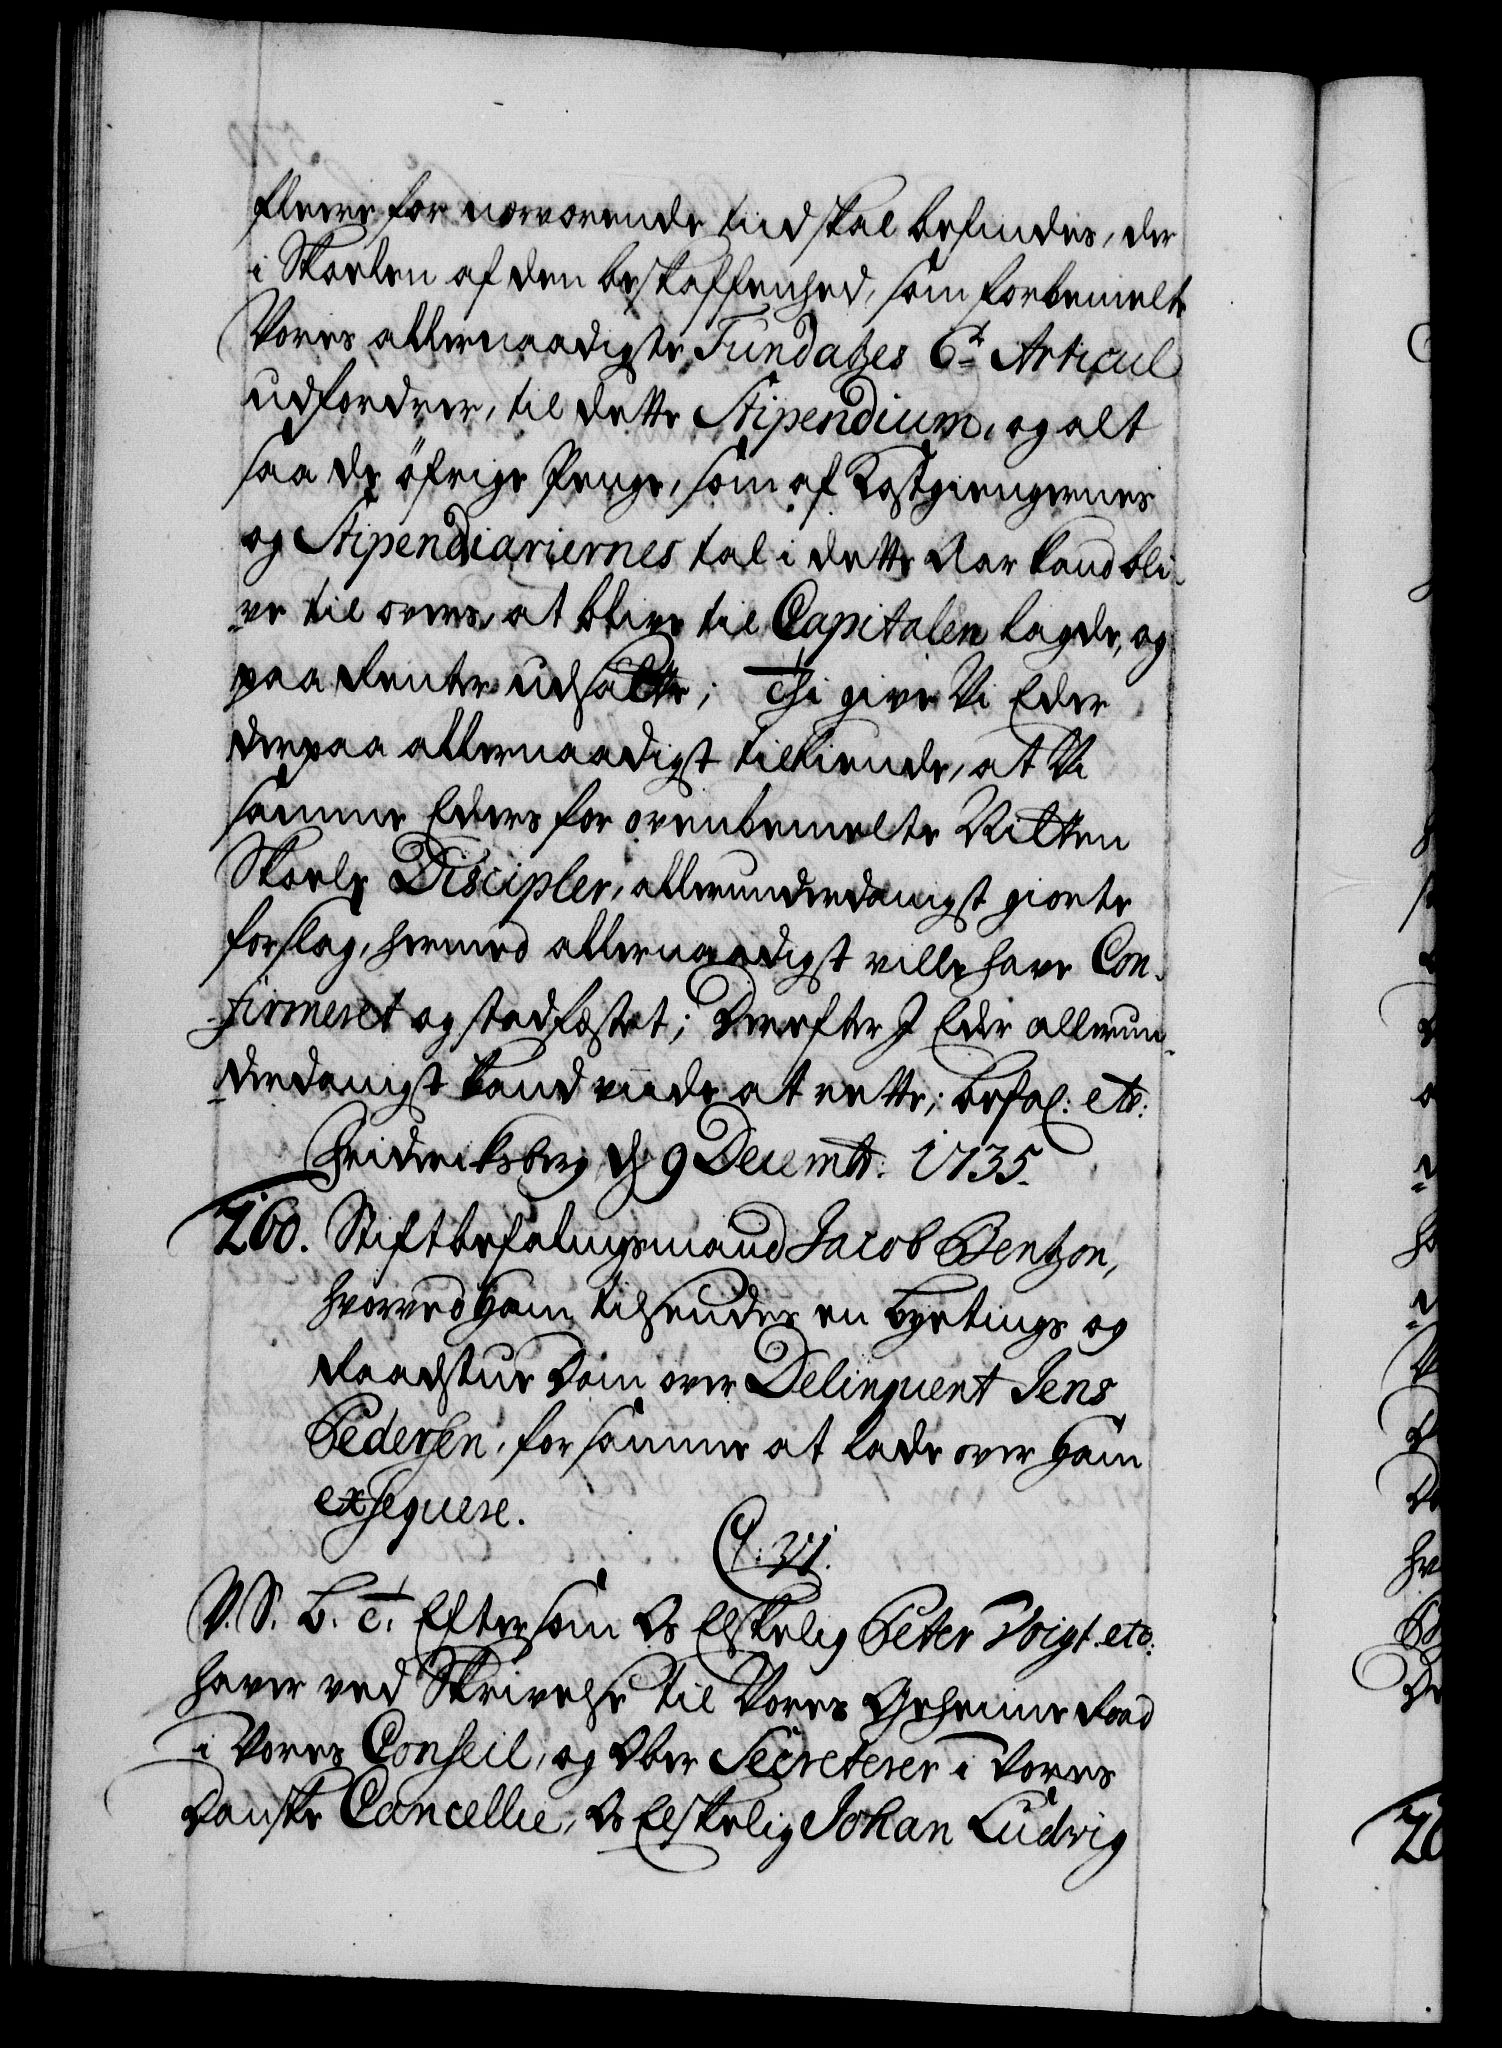 fleere for nærværende tiid skal befindes, der
i Skoelen af den beskaffenhed, som forbemelte
Vores allernaadigste Fundatzes 6te Articul
udfordrer, til dette Stipendium, og alt
saa de öfrige Penge, som af Kostgiengernes
og Stipendiariernes tal i dette Aar kand bli-
ve til overs, at blive til Capitalen lagde, og
paa Rente udsatte; Thi give Vi Eder
derpaa allernaadigst tilkiende, at Vi
samme Eders for ovenbemelte Latinske
Skoele Discipler, allerunderdanigst giorte
forslag, hermed allernaadigst ville have Con-
firmeret og stadfæstet; Derefter I Eder allerun-
derdanigst kand viide at rette; Befal: etc:
Friderichsberg d: 9 Decembr: 1735.
260. Stiftbefalingsmand Jacob Bentzon,
hvorved ham tilsendes en Byetings og
Raadstue Dom over Delinquent Jens
Pedersen, for samme at lade over ham
exsequere.
C. VI.
V. S. G. T. Eftersom Os Elskelig Peter Voigt etc:
haver ved Skrivelse til Vores Geheime Raad
i Vores Conseil, og Ober Secreterer i Vores
Danske Cancellie, Os Elskelig Johan Ludvig